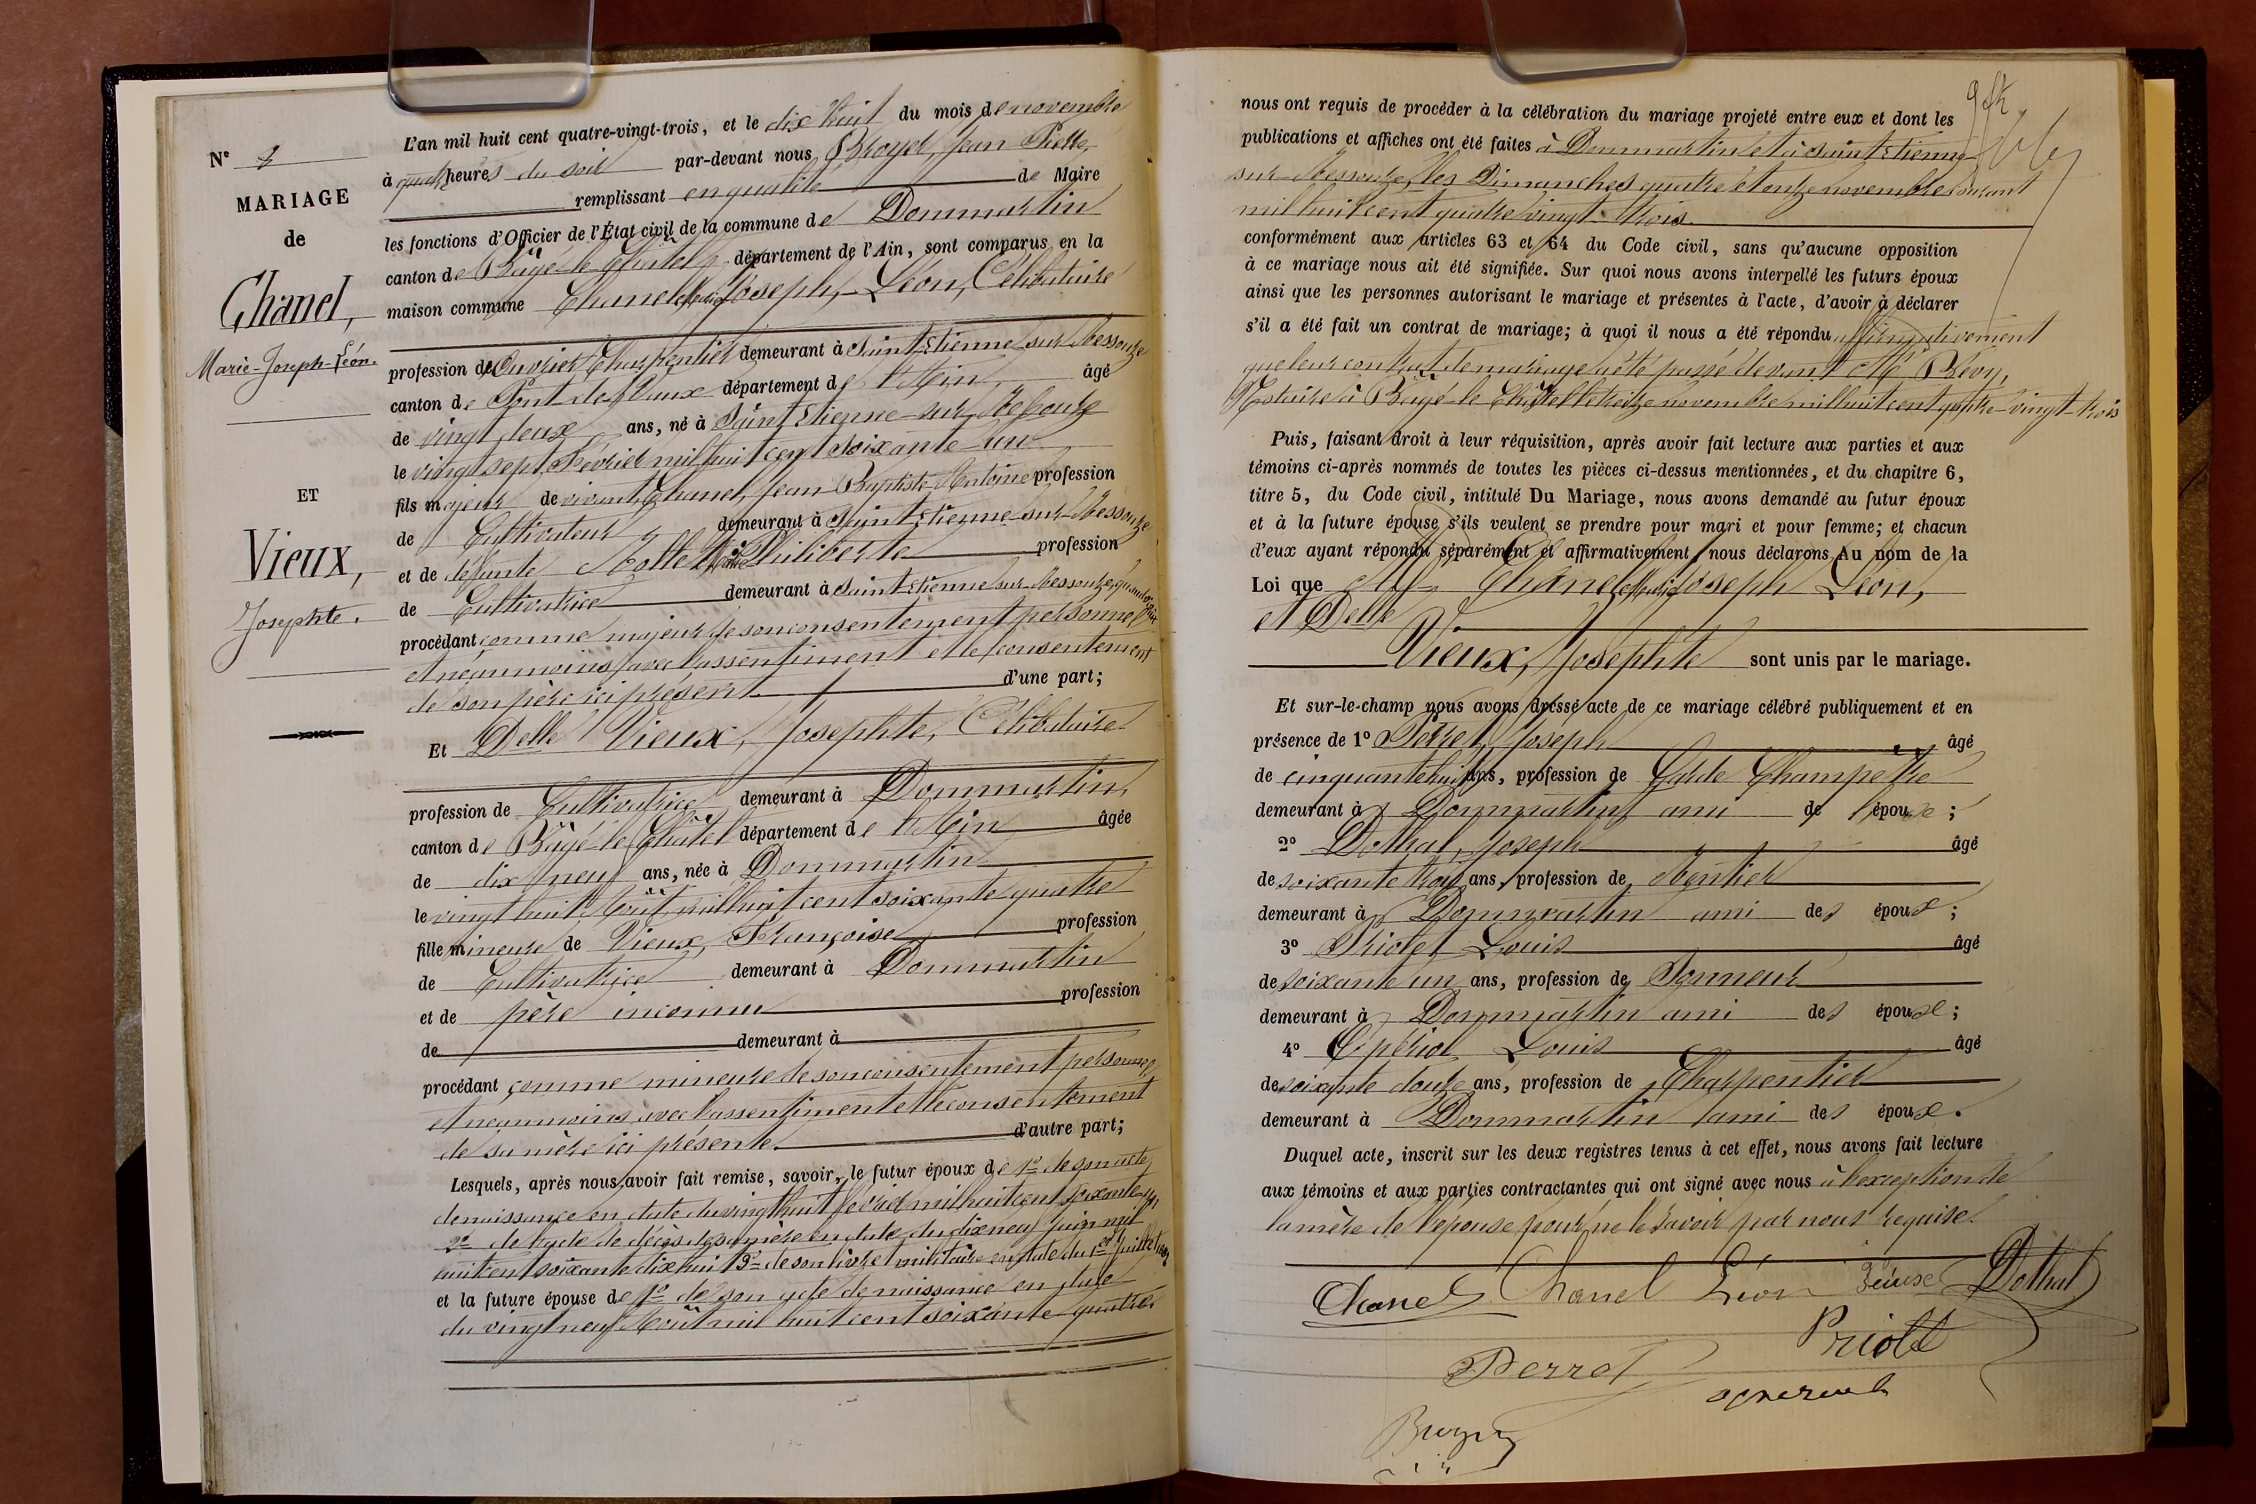 N° 8
MARIAGE
de
Chanel,
Marie-Joseph-Léon.
ET
Vieux,
Josephte.
L'an mil huit cent quatre-vingt-trois, et le dix huit du mois de novembre
à quatre heures du soir par-devant nous Broyer, Jean Pierre,
remplissant en qualité de Maire
les fonctions d'Officier de l'État civil de la commune de Dommartin
canton de Bâgé-le-Châtel département de l'Ain, sont comparus en la
maison commune Chanel Marie Joseph, Léon, Célibataire
profession de Ouvrier Charpentier demeurant à Saint Etienne sur Ressouze
canton de Pont de Vaux département de l'Ain, âgé
de vingt deux ans, né à Saint Etienne-sur-Ressouze
le vingt sept Février mil huit cent soixante-un
fils majeur de vivant Chanel, Jean Baptiste Antoine profession
de Cultivateur demeurant à Saint Etienne-sur-Ressouze
et de défunte Philiberte profession
de Cultivatrice demeurant à Saint Etienne sur Ressouze
procédant comme majeur de son consentement personnel
et néanmoins avec l'assentiment et le consentement
de son père ici présent d'une part;
Et Delle Vieux, Josephte, Célibataire
profession de Cultivatrice demeurant à Dommartin,
canton de Bâgé-le-Châtel département de l'Ain âgée
de dix neuf ans, née à Dommartin
le vingt huit Août mil huit cent soixante quatre
fille mineure de Vieux, Françoise profession
de Cultivatrice demeurant à Dommartin
et de père inconnu profession
de demeurant à
procédant comme mineure de son consentement personnel,
et néanmoins avec l'assentiment et le consentement
de sa mère ici présente. d'autre part;
Lesquels, après nous avoir fait remise, savoir, le futur époux de 1° de son acte
de naissance en date du vingt huit février mil huit cent soixante-un
2° de l'acte de décès de sa mère en date du dix neuf juin mil
huit cent soixante dix huit 3° de son livret militaire en date du 1er Juillet
et la future épouse de 1° de son acte de naissance en date
du vingt neuf Août mil huit cent soixante-quatre
nous ont requis de procéder à la célébration du mariage projeté entre eux et dont les
publications et affiches ont été faites à Dommartin et à Saint Etienne
sur-Ressouze, les Dimanches quatre et onze novembre courant
mil huit cent quatre vingt-trois.
conformément aux articles 63 et 64 du Code civil, sans qu'aucune opposition
à ce mariage nous ait été signifiée. Sur quoi nous avons interpellé les futurs époux
ainsi que les personnes autorisant le mariage et présentes à l'acte, d'avoir à déclarer
s'il a été fait un contrat de mariage; à quoi il nous a été répondu affirmativement
que leur contrat de mariage a été passé devant Me Révy,
Notaire à Bâgé-le-Châtel le treize novembre mil huit cent quatre-vingt trois
Puis, faisant droit à leur réquisition, après avoir fait lecture aux parties et aux
témoins ci-après nommés de toutes les pièces ci-dessus mentionnées, et du chapitre 6,
titre 5, du Code civil, intitulé Du Mariage, nous avons demandé au futur époux
et à la future épouse s'ils veulent se prendre pour mari et pour femme; et chacun
d'eux ayant répondu séparément et affirmativement, nous déclarons Au nom de la
Loi que Chanel Marie Joseph Léon,
et Delle
Vieux, Josephte sont unis par le mariage.
Et sur-le-champ nous avons dressé acte de ce mariage célébré publiquement et en
présence de 1° Perret, Joseph âgé
de cinquante huit ans, profession de Garde Champêtre
demeurant à Dommartin ami de époux;
2° Dothal, Joseph âgé
de soixante trois ans, profession de Rentier
demeurant à Dommartin ami des époux;
3° Priolet Louis âgé
de soixante un ans, profession de Sonneur
demeurant à Dommartin ami des époux;
4° Louis âgé
de soixante douze ans, profession de Charpentier
demeurant à Dommartin ami des époux.
Duquel acte, inscrit sur les deux registres tenus à cet effet, nous avons fait lecture
aux témoins et aux parties contractantes qui ont signé avec nous à l'exception de
la mère de l'épouse pour ne le savoir par nous requise.
Chanel Chanel Léon Dothal
Perret